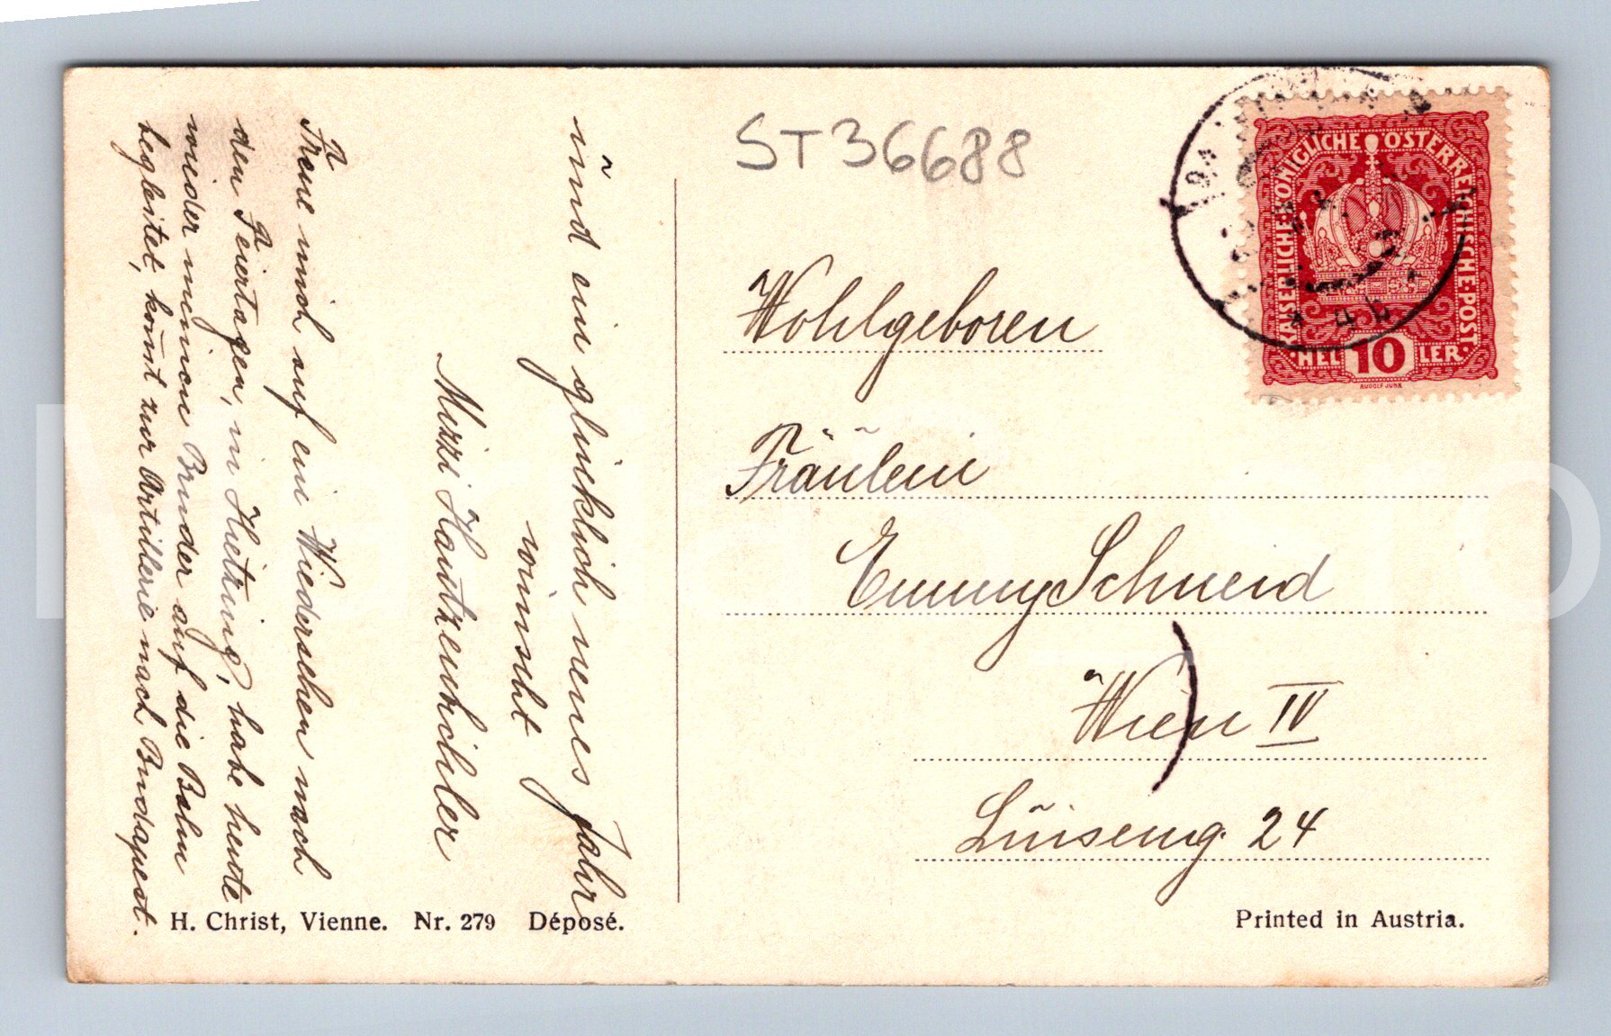 ST36688
KAISERLICHE KÖNIGLICHE ÖSTERREICHISCHE POST
HEL 10 LER
RUDOLF JUNK
Wohlgeboren
Fräulein
Emmy Schneid
Wien IV
Luiseng. 24
und ein glücklich neues Jahr
wünscht
Mizzi
Freue mich auf ein Wiedersehen nach
den Feiertagen, in Hietzing, habe heute
wieder meinen Bruder auf die Bahn
begleitet, kommt zur Artillerie nach Budapest.
H. Christ, Vienne. Nr. 279 Déposé.
Printed in Austria.